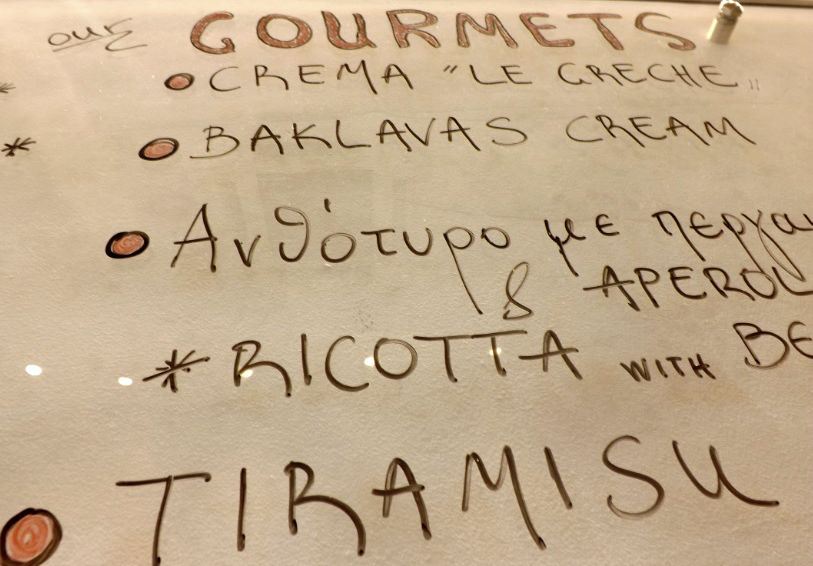 our GOURMETS
• CREMA "LE GRECHE"
* • BAKLAVAS CREAM
• Ανθότυρο με περγα
& APEROL
* RICOTTA WITH BE
• TIRAMISU